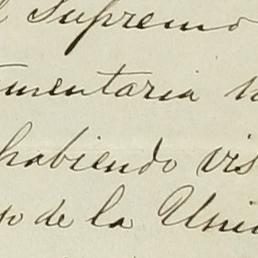 l Supremo
mentaria
habiendo vis
de la Uni